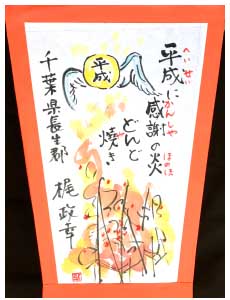 平成に
へいせい
感謝の炎
かんしゃ ほのほ
どんど
焼き
や
平成
千葉県長生郡
梶政幸